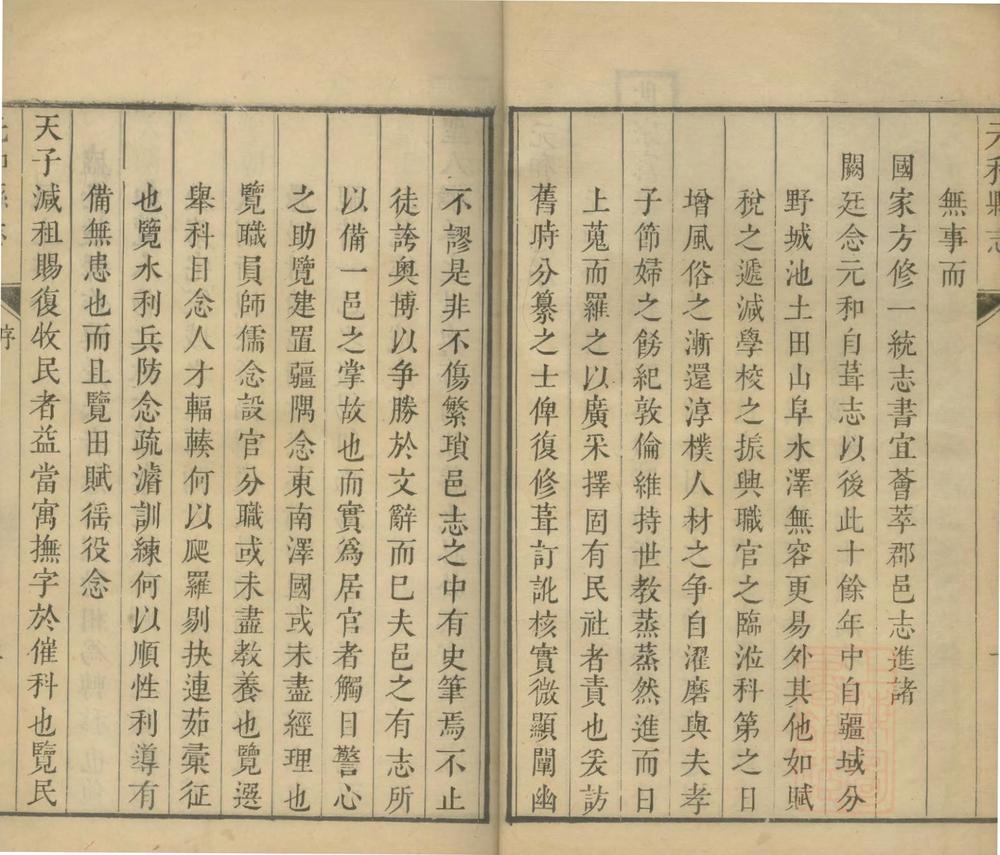 元和縣志
無事而
國家方修一統志書宜薈萃郡邑志進諸
闕廷念元和自葺志以後此十餘年中自疆域分
野城池土田山阜水澤無容更易外其他如賦
稅之遞減學校之振興職官之臨涖科第之日
增風俗之漸還淳樸人材之爭自濯磨與夫孝
子節婦之餝紀敦倫維持世教蒸蒸然進而日
上蒐而羅之以廣采擇固有民社者責也爰訪
舊時分纂之士俾復修葺訂訛核實微顯闡幽
不謬是非不傷繁瑣邑志之中有史筆焉不止
徒誇奧博以争勝於文辭而已夫邑之有志所
以備一邑之掌故也而實爲居官者觸目警心
之助覽建置疆隅念東南澤國或未盡經理也
覽職員師儒念設官分職或未盡教養也覽選
舉科目念人才輻輳何以爬羅剔抉連茹彙征
也覽水利兵防念疏濬訓練何以順性利導有
備無患也而且覽田賦徭役念
天子減租賜復牧民者益當寓撫字於催科也覽民
序